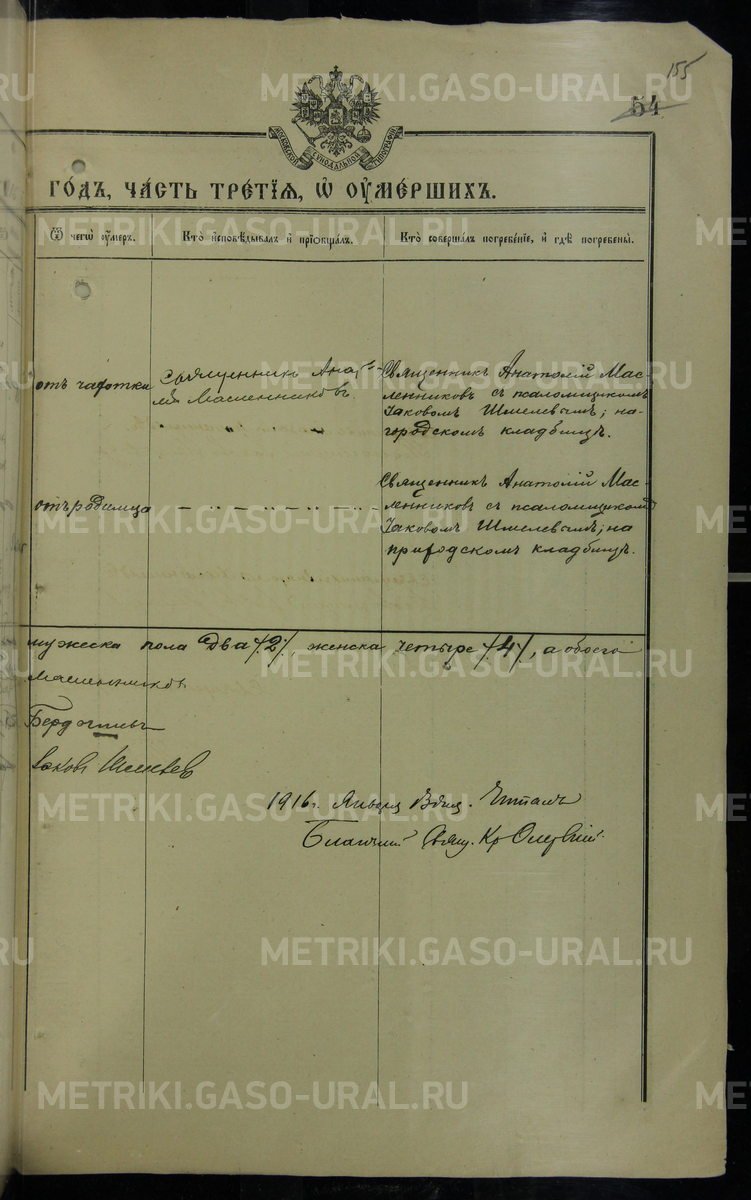 155
54
МОСКОВСКОЙ СѴНОДАЛЬНОЙ ТИПОГРАФІИ
ГО́ДЪ, ЧА́СТЬ ТРЕ́ТІѦ, Ѡ ОУ҆МЕ́РШИХЪ.
Ѿ чегѡ̀ оу҆́меръ. Кто̀ и҆сповѣ́дывалъ и҆ прїѻбща́лъ. Кто̀ соверша́лъ погребе́нїе, и҆ гдѣ̀ погребены̀.
отъ чахотки
священникъ Анато-
лій Масленниковъ.
Священникъ Анатолій Мас-
ленниковъ съ псаломщикомъ
Іаковомъ Шмелевымъ; на
городскомъ кладбищѣ.
отъ родимца
Священникъ Анатолій Мас-
ленниковъ съ псаломщикомъ
Іаковомъ Шмелевымъ; на
кладбищѣ.
мужеска пола два /2/, женска четыре /4/, а обоего
Масленниковъ
Іаковъ Шмелевъ
1916 г. Января
Благочин. Свящ.
METRIKI.GASO-URAL.RU